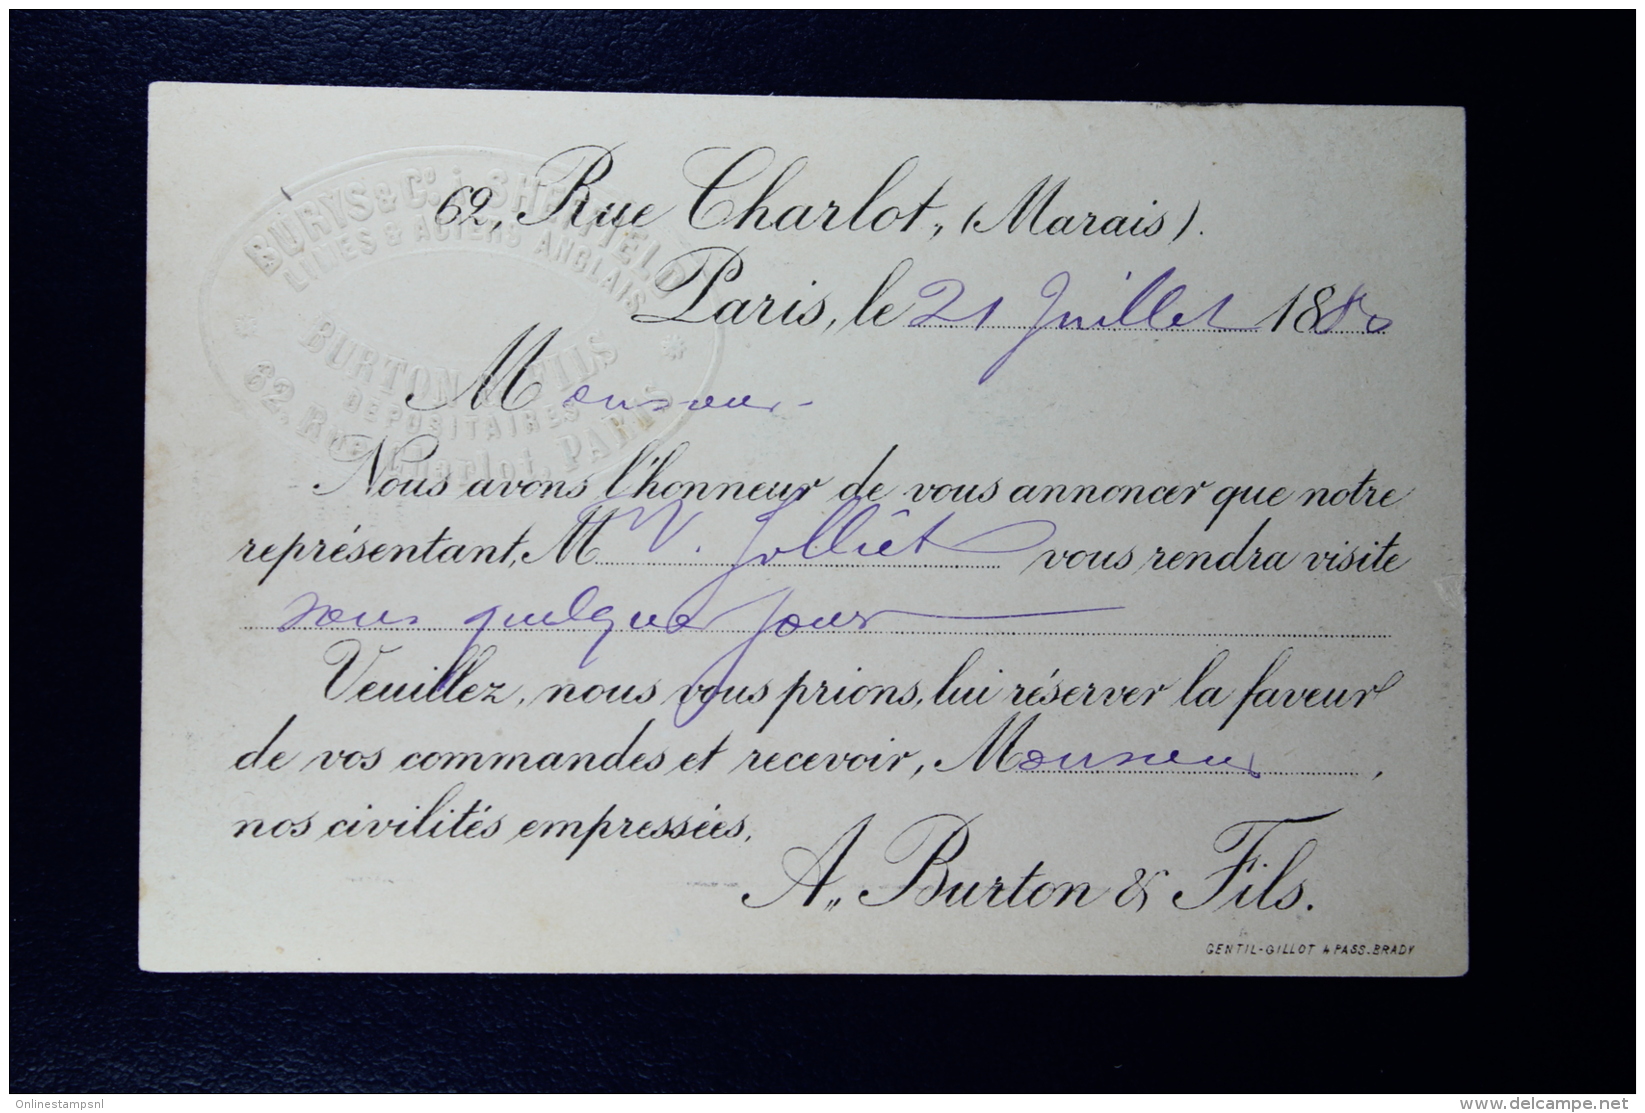 BURYS & Cº à SHEFFIELD
LIMES & ACIERS ANGLAIS
BURTON & FILS
DÉPOSITAIRES
62, Rue Charlot, PARIS
62, Rue Charlot, (Marais).
Paris, le 21 Juillet 1880
Monsieur
Nous avons l'honneur de vous annoncer que notre
représentant, M V. Jolliet vous rendra visite
sous quelques jours
Veuillez, nous vous prions, lui réserver la faveur
de vos commandes et recevoir, Monsieur,
nos civilités empressées.
A,, Burton & Fils.
GENTIL-GILLOT 4 PASS. BRADY
Onlinestampsnl
delcampe.net